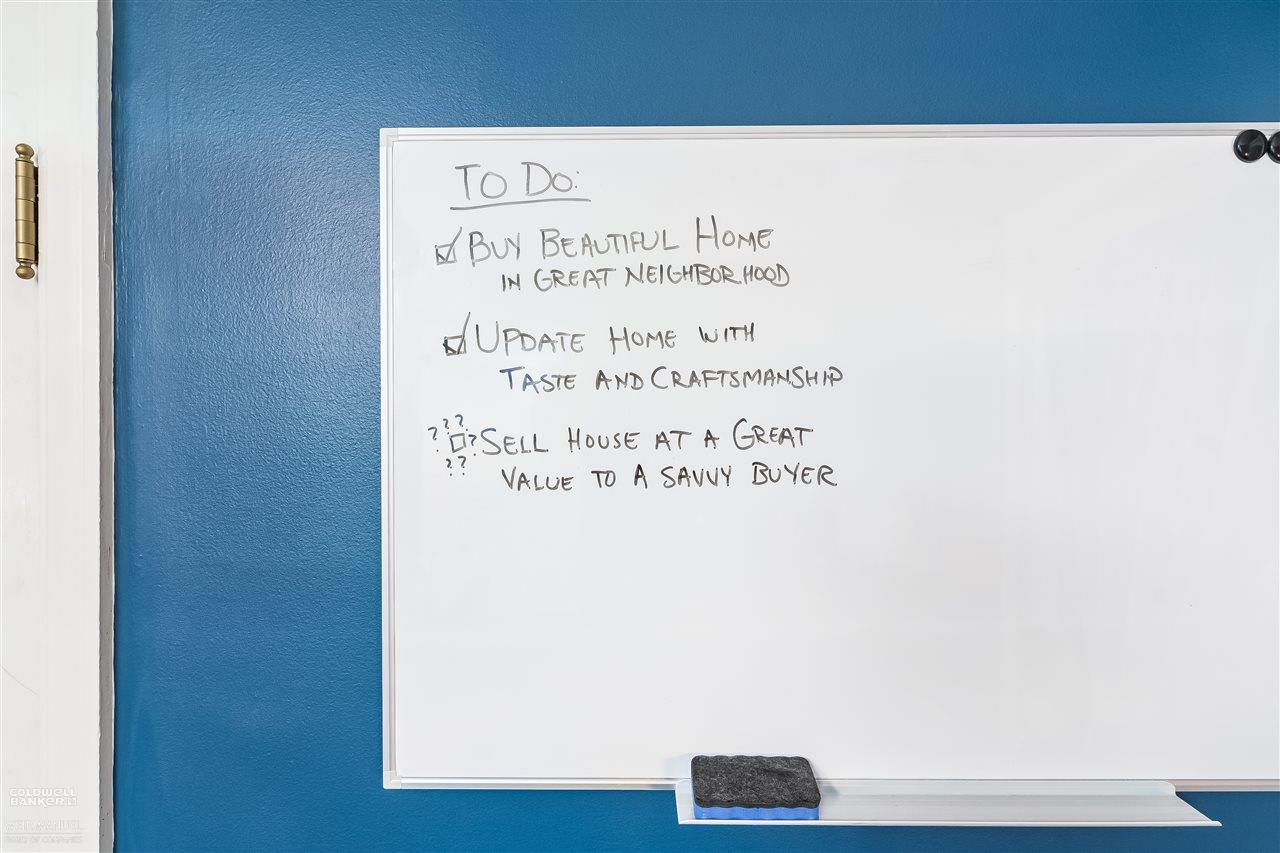 TO DO:
☑ BUY BEAUTIFUL HOME
IN GREAT NEIGHBORHOOD
☑ UPDATE HOME WITH
TASTE AND CRAFTSMANSHIP
??? ☐ ? SELL HOUSE AT A GREAT
??
VALUE TO A SAVVY BUYER
COLDWELL
BANKER
WEIR MANUEL